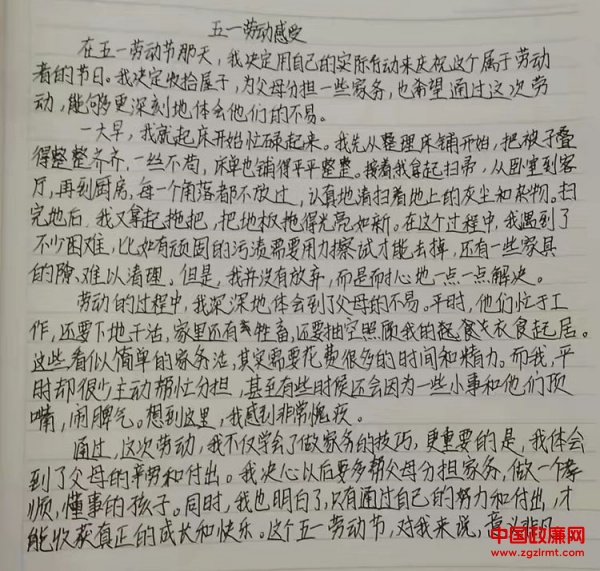 五一劳动感受
在五一劳动节那天，我决定用自己的实际行动来庆祝这个属于劳动
者的节日。我决定收拾屋子，为父母分担一些家务，也希望通过这次劳
动，能够更深刻地体会他们的不易。
一大早，我就起床开始忙碌起来。我先从整理床铺开始，把被子叠
得整整齐齐，一丝不苟，床单也铺得平平整整。接着我拿起扫帚，从卧室到客
厅，再到厨房，每一个角落都不放过，认真地清扫着地上的灰尘和杂物。扫
完地后，我又拿起拖把，把地板拖得光亮如新。在这个过程中，我遇到了
不少困难，比如有顽固的污渍需要用力擦试才能去掉，还有一些家具
的隙，难以清理。但是，我并没有放弃，而是耐心地一点一点解决。
劳动的过程中，我深深地体会到了父母的不易。平时，他们忙于工
作，还要下地干活，家里还有牲畜，还要抽空照顾我的衣食起居。
这些看似简单的家务活，其实需要花费很多的时间和精力。而我，平
时却很少主动帮忙分担，甚至有些时候还会因为一些小事和他们顶
嘴，闹脾气。想到这里，我感到非常愧疚。
通过，这次劳动，我不仅学会了做家务的技巧，更重要的是，我体会
到了父母的辛劳和付出。我决心以后要多帮父母分担家务，做一个孝
顺，懂事的孩子。同时，我也明白了，只有通过自己的努力和付出，才
能收获真正的成长和快乐。这个五一劳动节，对我来说，意义非凡
中国政廉网
www.zgzlrmt.com